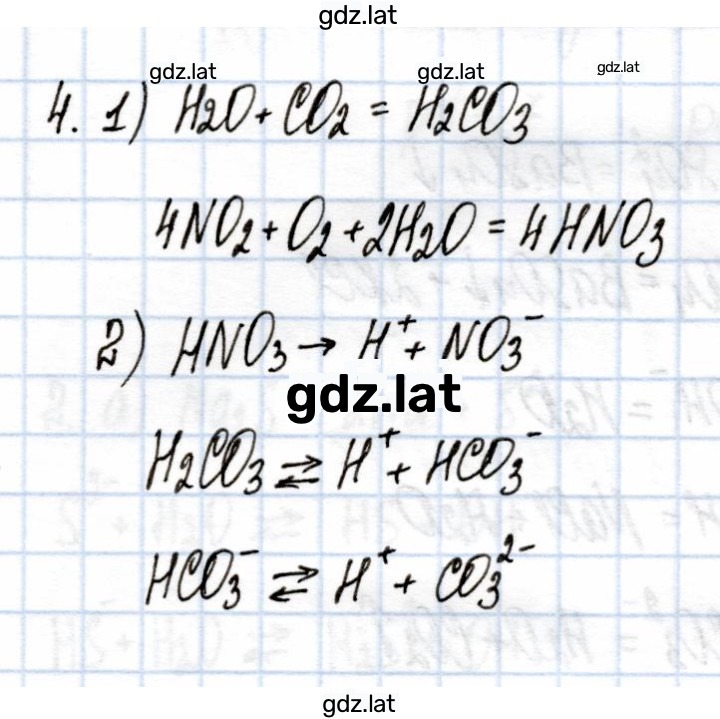 gdz.lat
gdz.lat gdz.lat gdz.lat
4. 1) H2O + CO2 = H2CO3
4NO2 + O2 + 2H2O = 4HNO3
2) HNO3 → H⁺ + NO3⁻
gdz.lat
H2CO3 ⇄ H⁺ + HCO3⁻
HCO3⁻ ⇄ H⁺ + CO3²⁻
gdz.lat